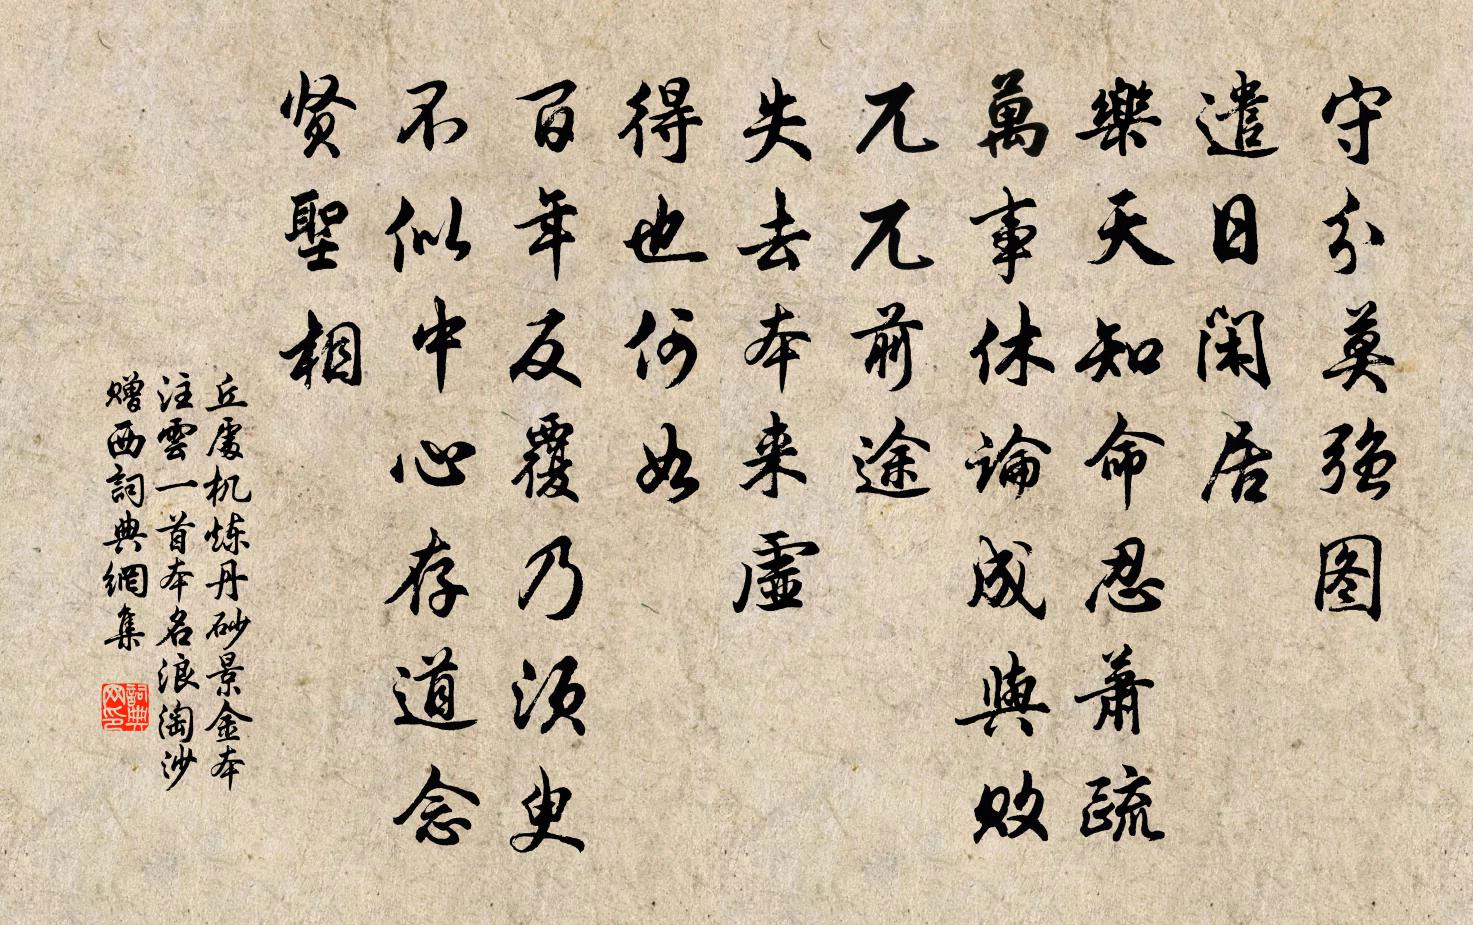 守分莫强图
遣日闲居
樂天知命忍萧疏
萬事休論成與败
兀兀前途
失去本来虚
得也何如
百年反覆乃须臾
不似中心存道念
贤聖相
丘處机炼丹砂景金本
注雲一首本名浪淘沙
赠西詞典網集
詞典
网印